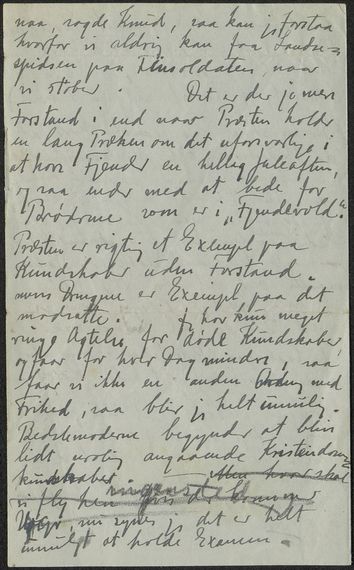 naa, sagde Knud, saa kan jeg forstaa
hvorfor vi aldrig kan faa Landse=
spidsen paa Tinsoldaten, naar
vi støber. Det er der jo mere
Forstand i end naar Præsten holder
en lang Præken om det uforsvarlige i
at hver Fjender en hellig Juleaften,
og saa ender med at bede for
Brødrene som er i "Fjendevold".
Præsten er rigtig et Exempel paa
Kundskaber uden Forstand,
mens Drengene er Exempel paa det
modsatte. Jeg har kun meget
ringe Agtelse for døde Kundskaber
og faar for hver Dag mindre, saa
faar vi ikke en anden Ordning med
Frihed, saa blir jeg helt umulig.
Bedstemoderne begynder at blive
lidt urolig angaaende Kristendoms
kundskaber. Men hvor skal
vi fly hen
nu synes jeg det er helt
umuligt at holde Examen.